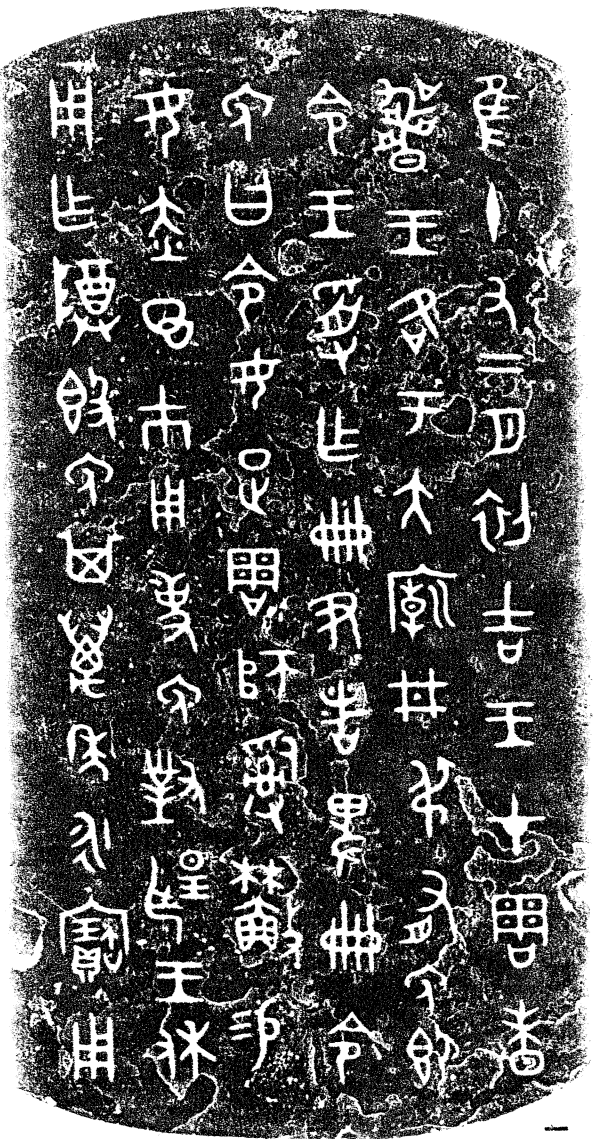 隹十又二月初吉王才周昧
爽王各于大廟井弔有免即
令王受乍冊尹者卑冊令
免曰令女疋周師𤔲易
女赤巿用事免對揚王休
用乍尊𣪘免其萬年永寶用